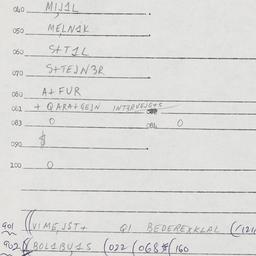 040 MIJ1L
050 MELN1K
060 S+T1L
070 S+TEJN3R
080 A+FUR
081 + QARA+GEJN
083 0 084 0
090 $
100 0
901 ((VIMEJST+ Q1 BEDEREXKLAL (/121
902 ((BOL1BU1S (022 (068 (160